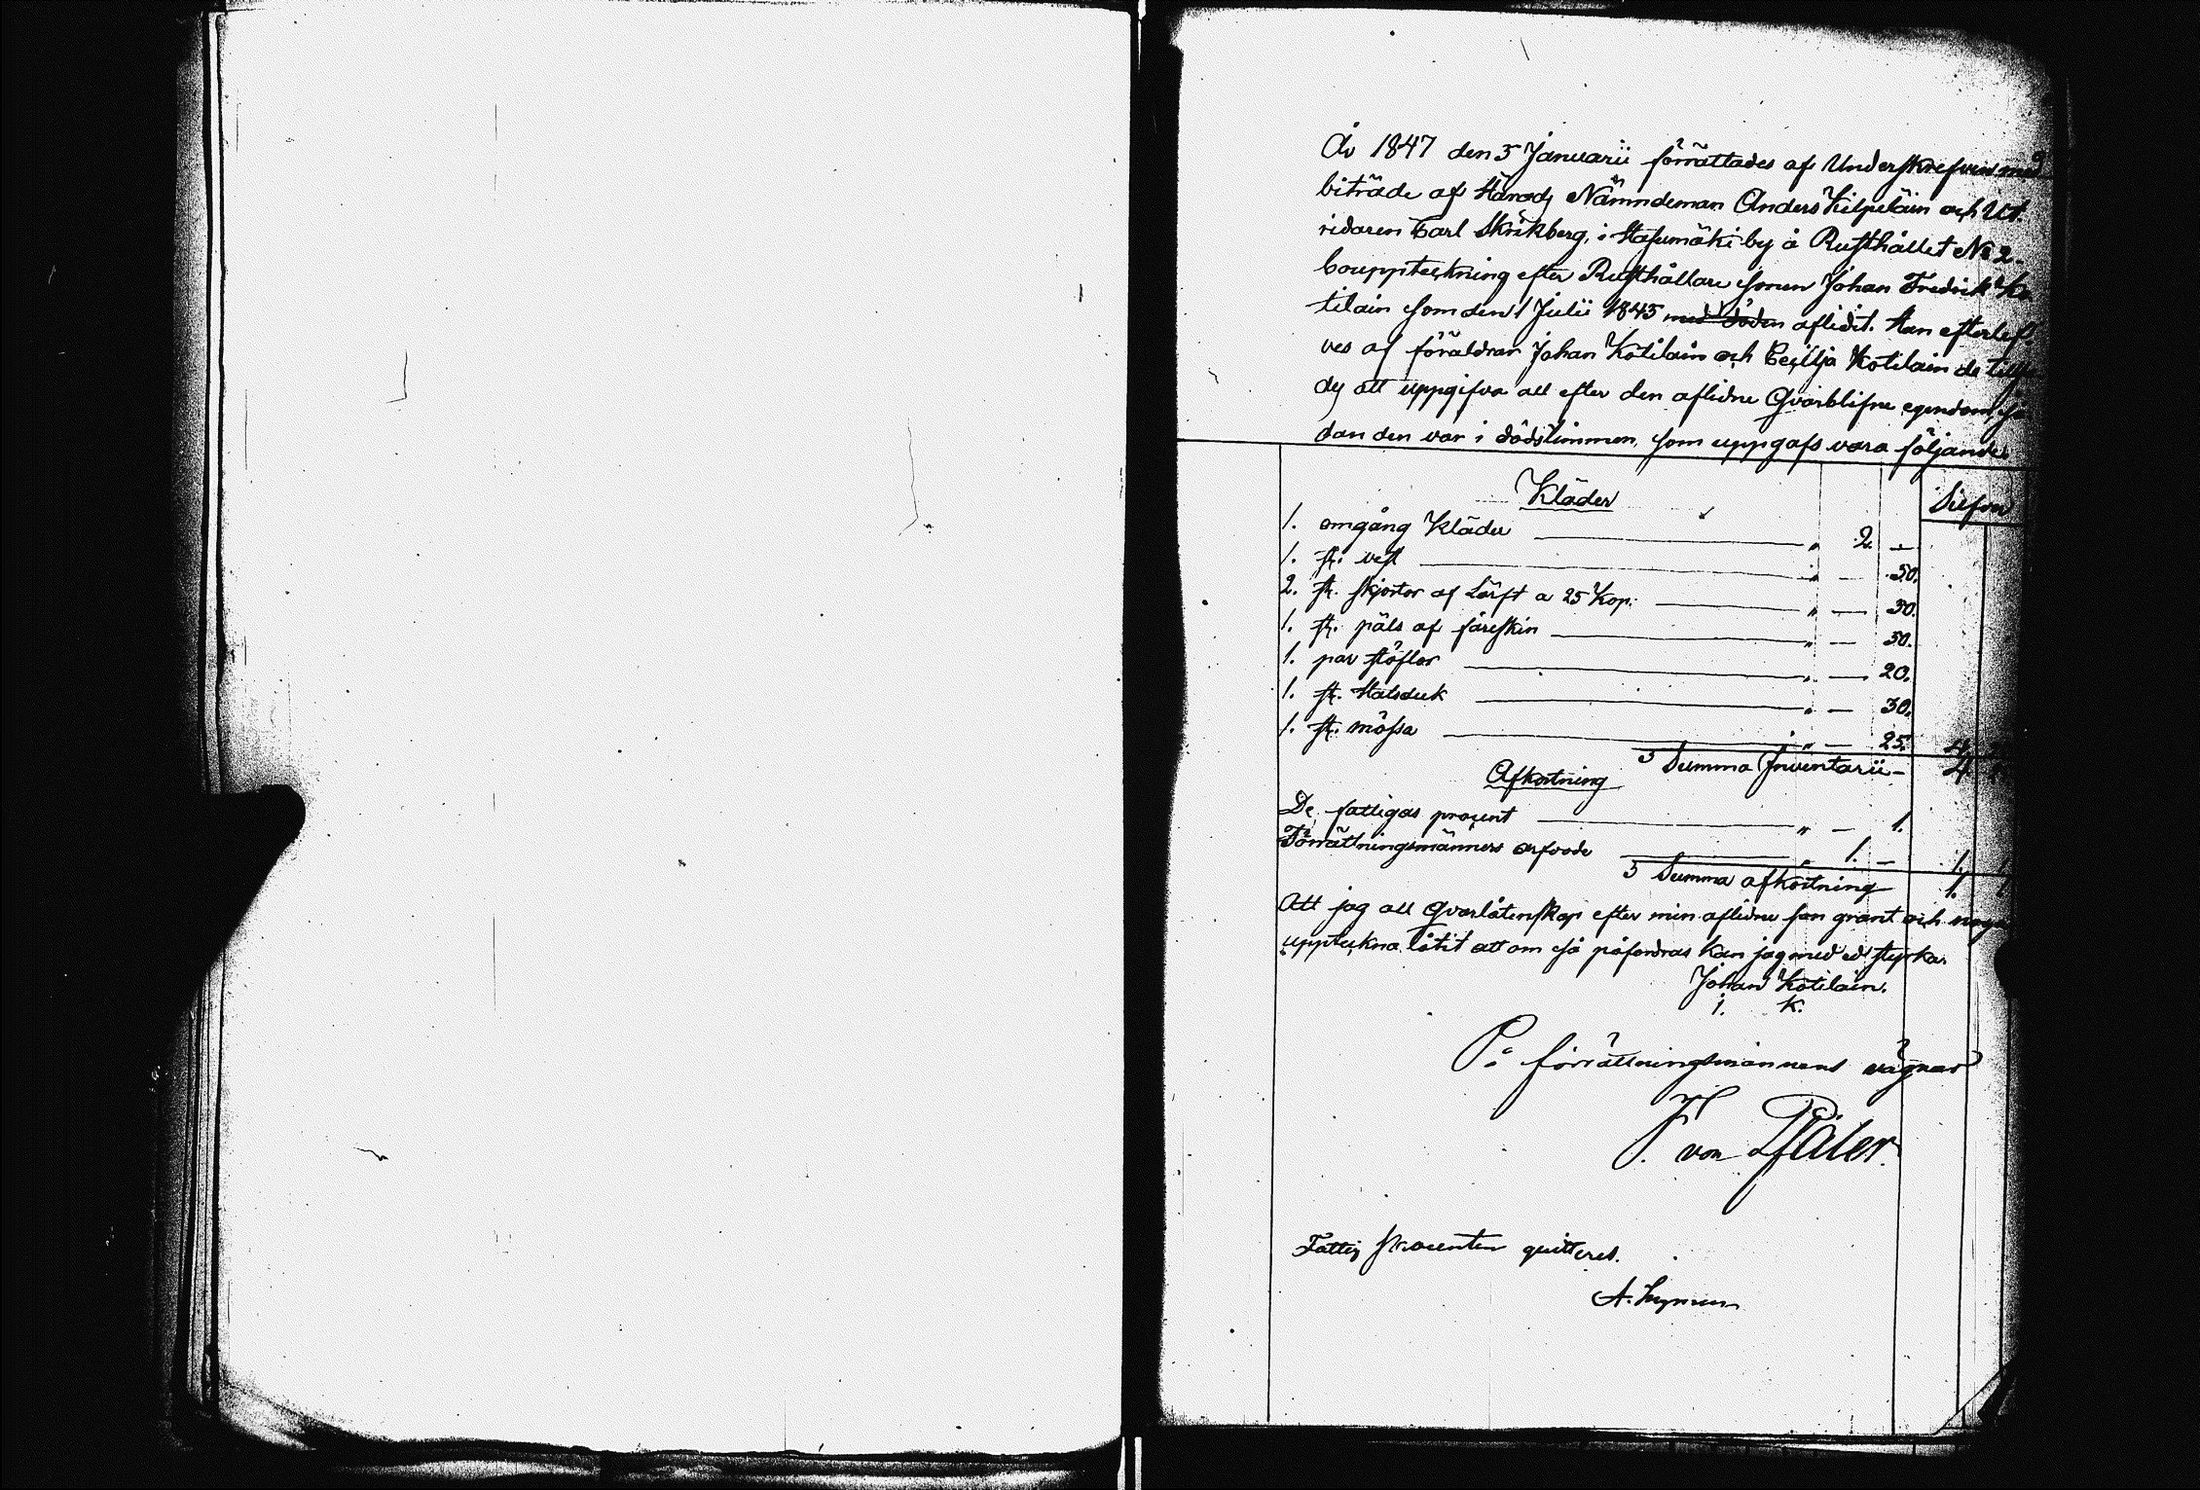 År 1847 den 5 Januarii förrättades af Underskrefven med
biträde af Härads Nämndeman Anders Kilpeläin och Ut-
ridaren Carl Skrikberg, i Hasumäki by å Rusthållet No 2
bouppteckning efter Rusthållare sonen Johan Fredrik Ko
tilain som den 1 Julii 1845 med döden aflidit. Han efterlef
ves af föräldrar Johan Kotilain och Cecilja Kotilain de
ds att uppgifva all efter den aflidne Qvarblifne egendom, så
dan den var i dödstimmen, som uppgafs vara följande
Silfver
Kläder
1. omgång Kläder " 2. —
1. st. vest " — 50.
2. st. skjortor af Lärft a 25 Kop: " — 50.
1. st. päls af fårskin " — 50.
1. par stöflor " — 20.
1. st. Halsduk " — 30.
1. st. mössa " — 25. 4
Summa Inventarii — 4
Afkortning
De fattigas procent " — 1.
Förrättningsmänners arfvode 1. — 1. 1
Summa afkortning 1. 1
Att jag all Qvarlåtenskap efter min aflidne son grant och noga
uppteckna låtit att om så påfordras kan jag med ed styrka.
Johan Kotilain.
j. K.
På förrättningsmännens vägnar
F. von Pfaler.
Fattig procenten quitteras.
A.